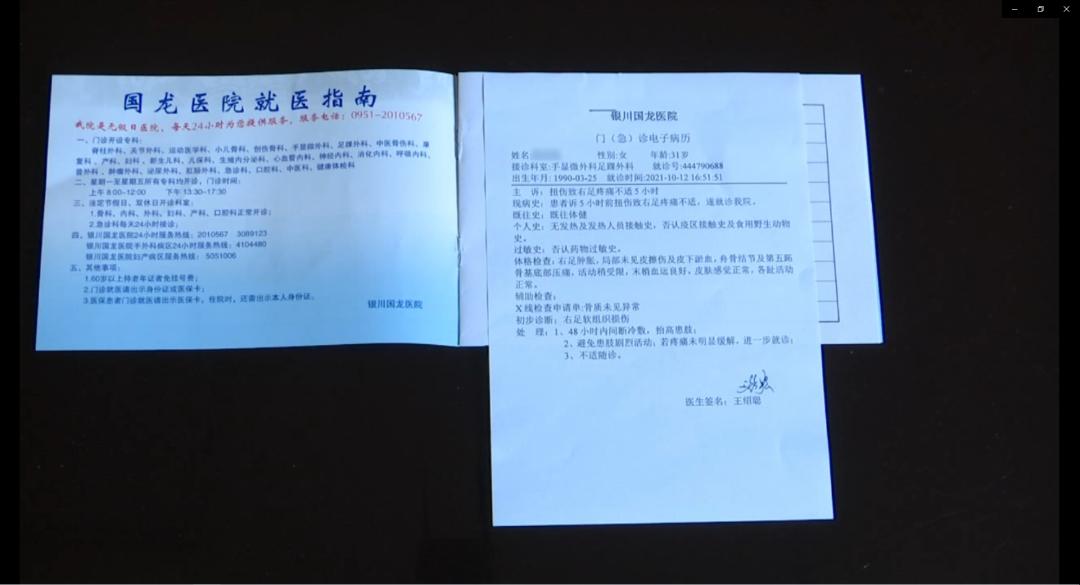 国龙医院就医指南
我院是无假日医院，每天24小时为您提供服务，服务电话：0951-2010567
一、门诊开设专科：
脊柱外科、关节外科、运动医学科、小儿骨科、创伤骨科、手显微外科、足踝外科、中医骨伤科、康
复科、产科、妇科、新生儿科、儿保科、生殖内分泌科、心血管内科、神经内科、消化内科、呼吸内科、
普外科、肿瘤外科、泌尿外科、肛肠外科、急诊科、口腔科、中医科、健康体检科
二、星期一至星期五所有专科均开诊，门诊时间：
上午 8:00-12:00 下午 13:30-17:30
三、法定节假日、双休日开诊科室：
1.骨科、内科、外科、妇科、产科、口腔科正常开诊；
2.急诊科每天24小时接诊；
四、银川国龙医院24小时服务热线：2010567 3089123
银川国龙医院手外科病区24小时服务热线：4104480
银川国龙医院妇产病区服务热线：5051006
五、其他事项：
1.60岁以上持老年证者免挂号费；
2.门诊就医请出示身份证或医保卡；
3.医保患者门诊就医请出示医保卡，住院时，还需出示本人身份证。
银川国龙医院
银川国龙医院
门（急）诊电子病历
姓名: 性别:女 年龄:31岁
接诊科室:手显微外科足踝外科 就诊号:444790688
出生年月: 1990-03-25 就诊时间:2021-10-12 16:51:51
主 诉：扭伤致右足疼痛不适 5 小时
现病史：患者诉 5 小时前扭伤致右足疼痛不适，遂就诊我院。
既往史：既往体健
个人史：无发热及发热人员接触史，否认疫区接触史及食用野生动物
史。
过敏史：否认药物过敏史。
体格检查：右足肿胀，局部未见皮擦伤及皮下淤血，舟骨结节及第五跖
骨基底部压痛，活动稍受限，末梢血运良好，皮肤感觉正常，各趾活动
正常。
辅助检查：
X 线检查申请单:骨质未见异常
初步诊断：右足软组织损伤
处 理：1、48 小时内间断冷敷，抬高患肢；
2、避免患肢剧烈活动；若疼痛未明显缓解，进一步就诊；
3、不适随诊。
医生签名：王绍聪